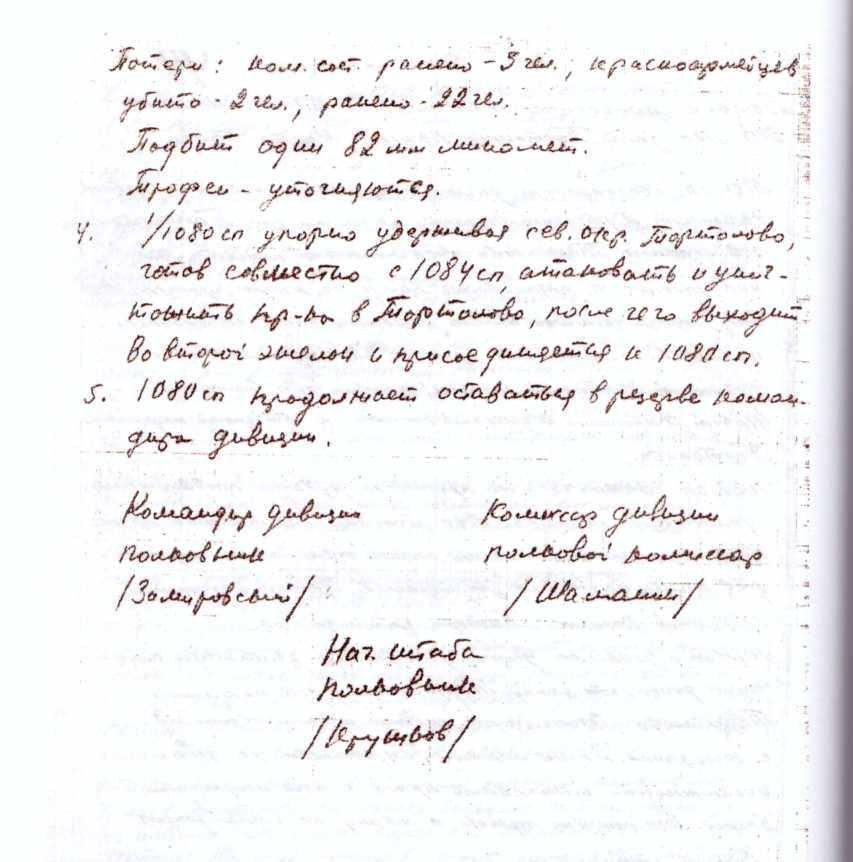 Потери: ком. сост. ранено - 3 чел., красноармейцев
убито - 2 чел., ранено - 22 чел.
Подбит один 82 мм миномет.
Трофеи - уточняются.
4. 1/1080 сп упорно удерживая сев. окр. Тортолово,
готов совместно с 1084 сп, атаковать и унич-
тожить пр-ка в Тортолово, после чего выходит
во второй эшелон и присоединяется к 1080 сп.
5. 1080 сп продолжает оставаться в резерве коман-
дира дивизии.
Командир дивизии
полковник
/Замировский/
Комиссар дивизии
полковой комиссар
/Шаманин/
Нач. штаба
полковник